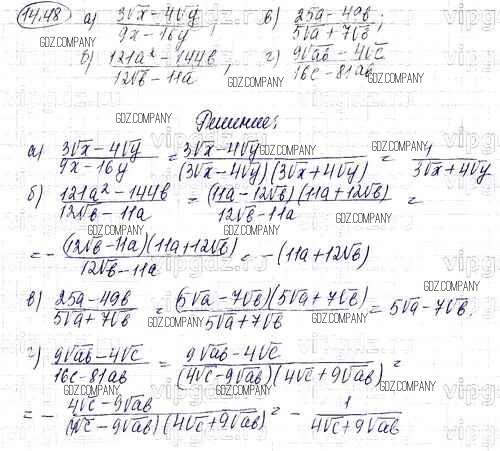 14.48 а) 3√x − 4√y / 9x − 16y ; в) 25a − 49в / 5√a + 7√в ;
б) 121a² − 144в / 12√в − 11a , г) 9√aв − 4√c / 16c − 81aв
Решение:
а) 3√x − 4√y / 9x − 16y = 3√x − 4√y / (3√x − 4√y)(3√x + 4√y) = 1 / 3√x + 4√y
б) 121a² − 144в / 12√в − 11a = (11a − 12√в)(11a + 12√в) / 12√в − 11a =
= − (12√в − 11a)(11a + 12√в) / 12√в − 11a = − (11a + 12√в)
в) 25a − 49в / 5√a + 7√в = (5√a − 7√в)(5√a + 7√в) / 5√a + 7√в = 5√a − 7√в.
г) 9√aв − 4√c / 16c − 81aв = 9√aв − 4√c / (4√c − 9√aв)(4√c + 9√aв) =
= − 4√c − 9√aв / (4√c − 9√aв)(4√c + 9√aв) = − 1 / 4√c + 9√aв
GDZ.COMPANY
vipgdz.ru